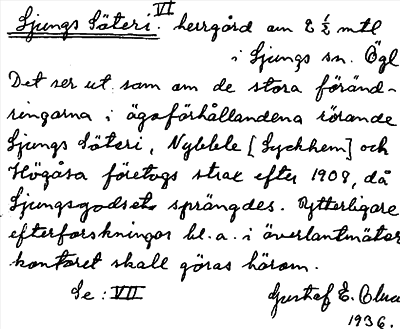 Ljungs Säteri. VI herrgård om 2 1/2 mtl
i Ljungs sn. Ögl
Det ser ut som om de stora föränd-
ringarna i ägoförhållandena rörande
Ljungs Säteri, Nybble [Lyckhem] och
Högåsa företogs strax efter 1908, då
Ljungsgodsets sprängdes. Ytterligare
efterforskningar bl. a. i överlantmätar
kontoret skall göras härom.
Se: VII Gustaf E.
1936.